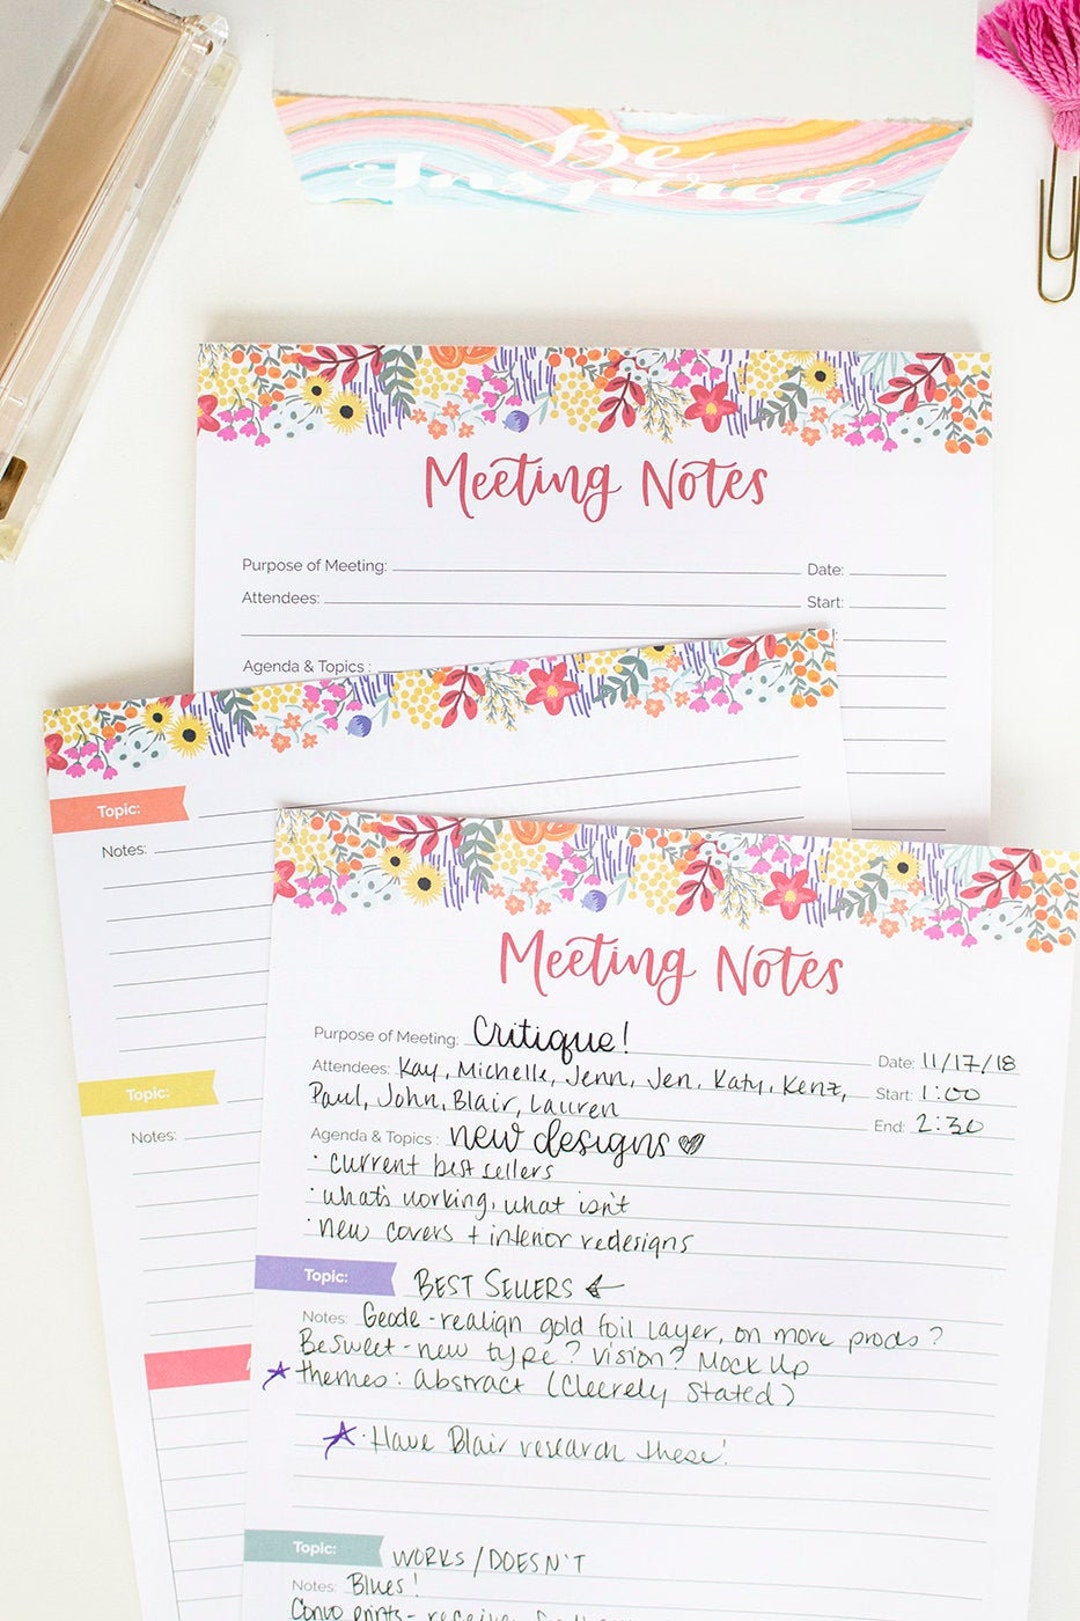 Be
Inspired
Meeting Notes
Purpose of Meeting: Date:
Attendees: Start:
Agenda & Topics :
Topic:
Notes:
Topic:
Notes:
Meeting Notes
Purpose of Meeting: Critique! Date: 11/17/18
Attendees: Kay, Michelle, Jenn, Jen, Katy, Kenz, Start: 1:00
Paul, John, Blair, Lauren End: 2:30
Agenda & Topics : new designs
· current best sellers
· what's working, what isn't
· new covers + interior redesigns
Topic: BEST SELLERS ←
Notes: Geode - realign gold foil layer, on more prods?
BeSweet - new type? vision? Mock Up
☆ themes: abstract (Cleerely Stated)
☆ · Have Blair research these!
Topic: WORKS / DOESN'T
Notes: Blues!
prints -